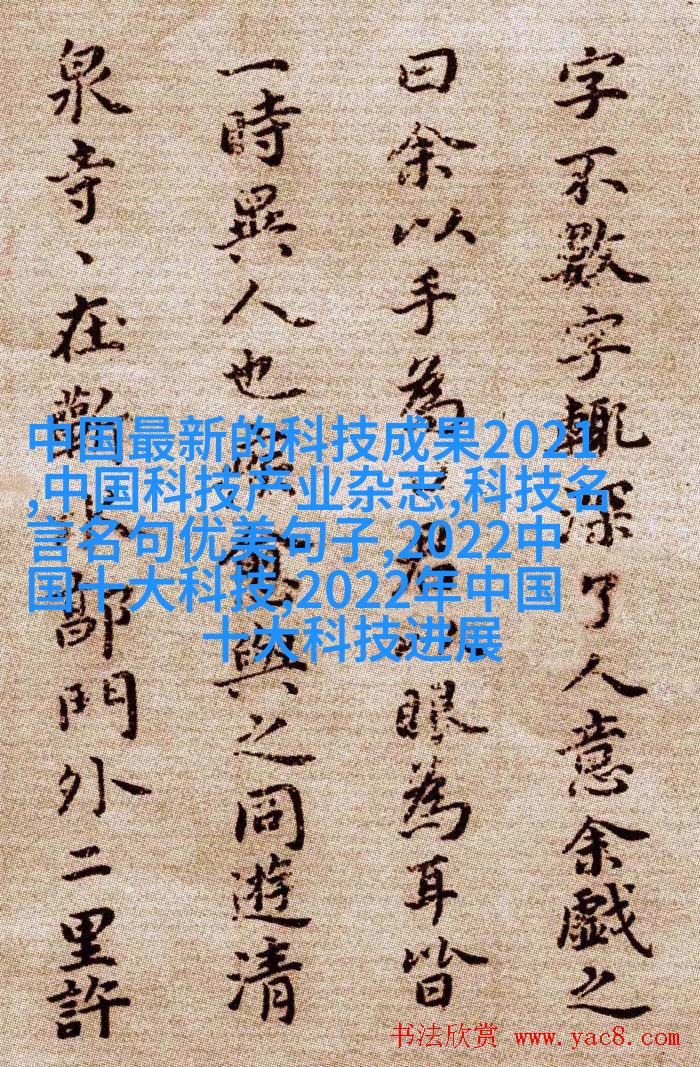 字不數字輒深了人意余戲之
曰余以手為眼為耳皆
一時異人也與之同遊清
泉寺、在蘄郭門外二里許
中国最新的科技成果2021
,中国科技产业杂志,科技名
言名句优美句子,2022中
国十大科技,2022年中国
十大科技进展
书法欣赏 www.yac8.com